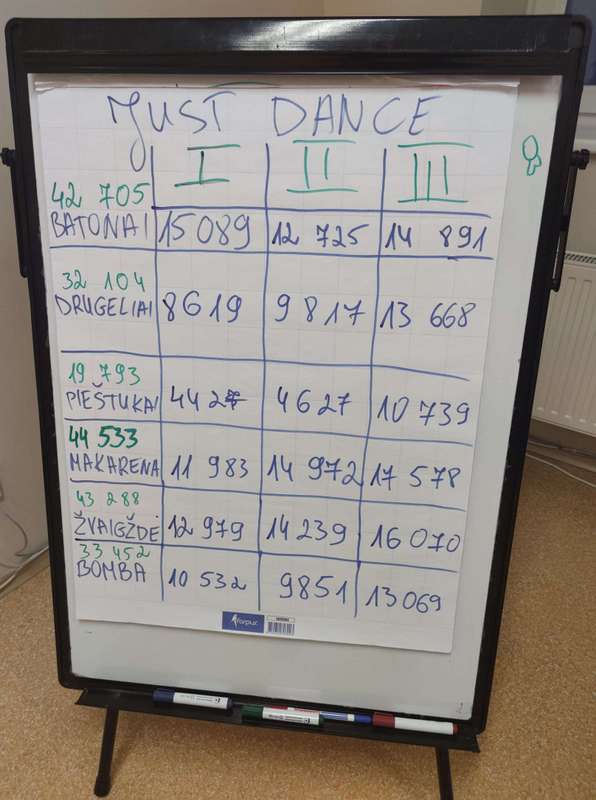 JUST DANCE
I II III
42 705
BATONAI 15 089 12 725 14 891
32 104
DRUGELIAI 8 619 9 817 13 668
19 793
PIEŠTUKAI 4427 4627 10 739
44 533
MAKARENA 11 983 14 972 17 578
43 288
ŽVAIGŽDĖ 12 979 14 239 16 070
33 452
BOMBA 10 532 9851 13 069
forpus